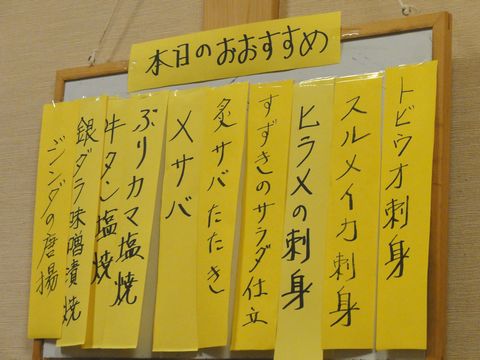 本日のおおすすめ
トビウオ刺身
スルメイカ刺身
ヒラメの刺身
すずきのサラダ仕立
炙サバたたき
〆サバ
ぶりカマ塩焼
牛タン塩焼
銀ダラ味噌漬焼
ジンダの唐揚